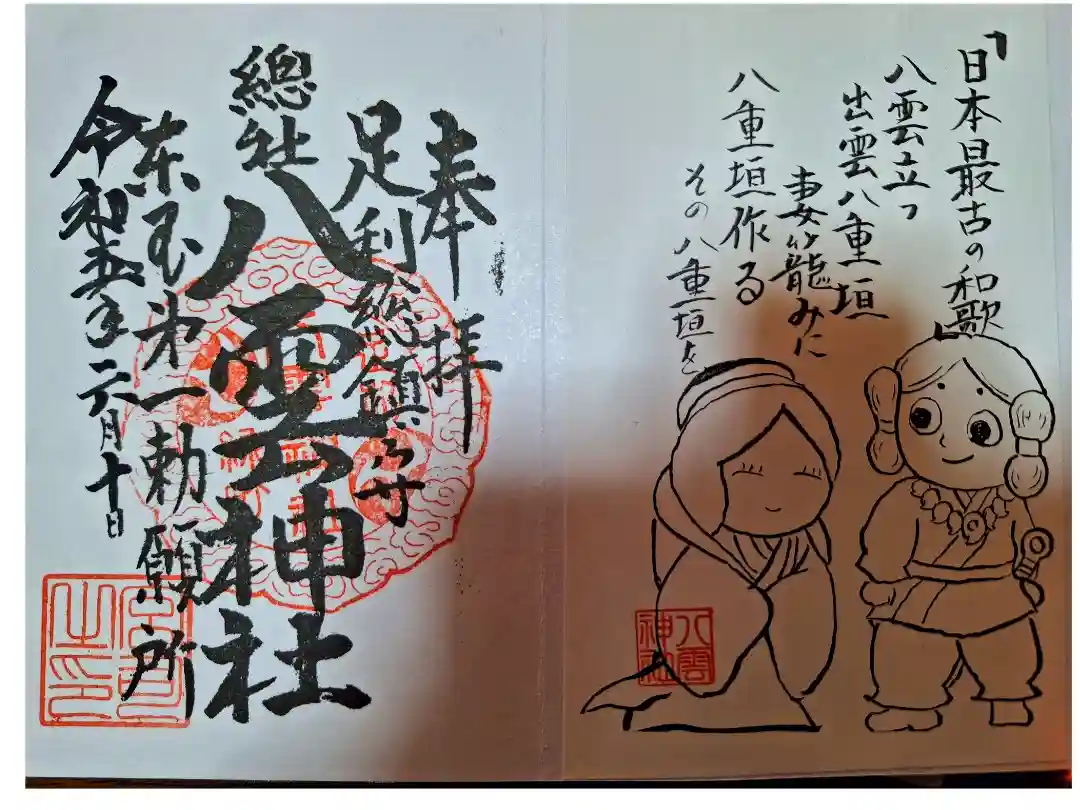 「日本最古の和歌」
八雲立つ
出雲八重垣
妻籠みに
八重垣作る
その八重垣を
奉拝
足利総鎮守
總社
八雲神社
東国第一勅願所
令和五年二月十日
八雲
神社
宮司
之印